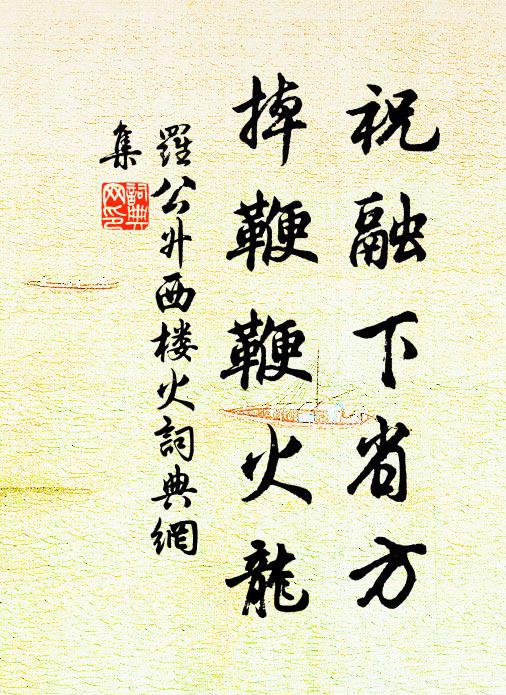 祝融下省方
掉鞭鞭火龍
羅公升西楼火詞典網
集
詞典網印